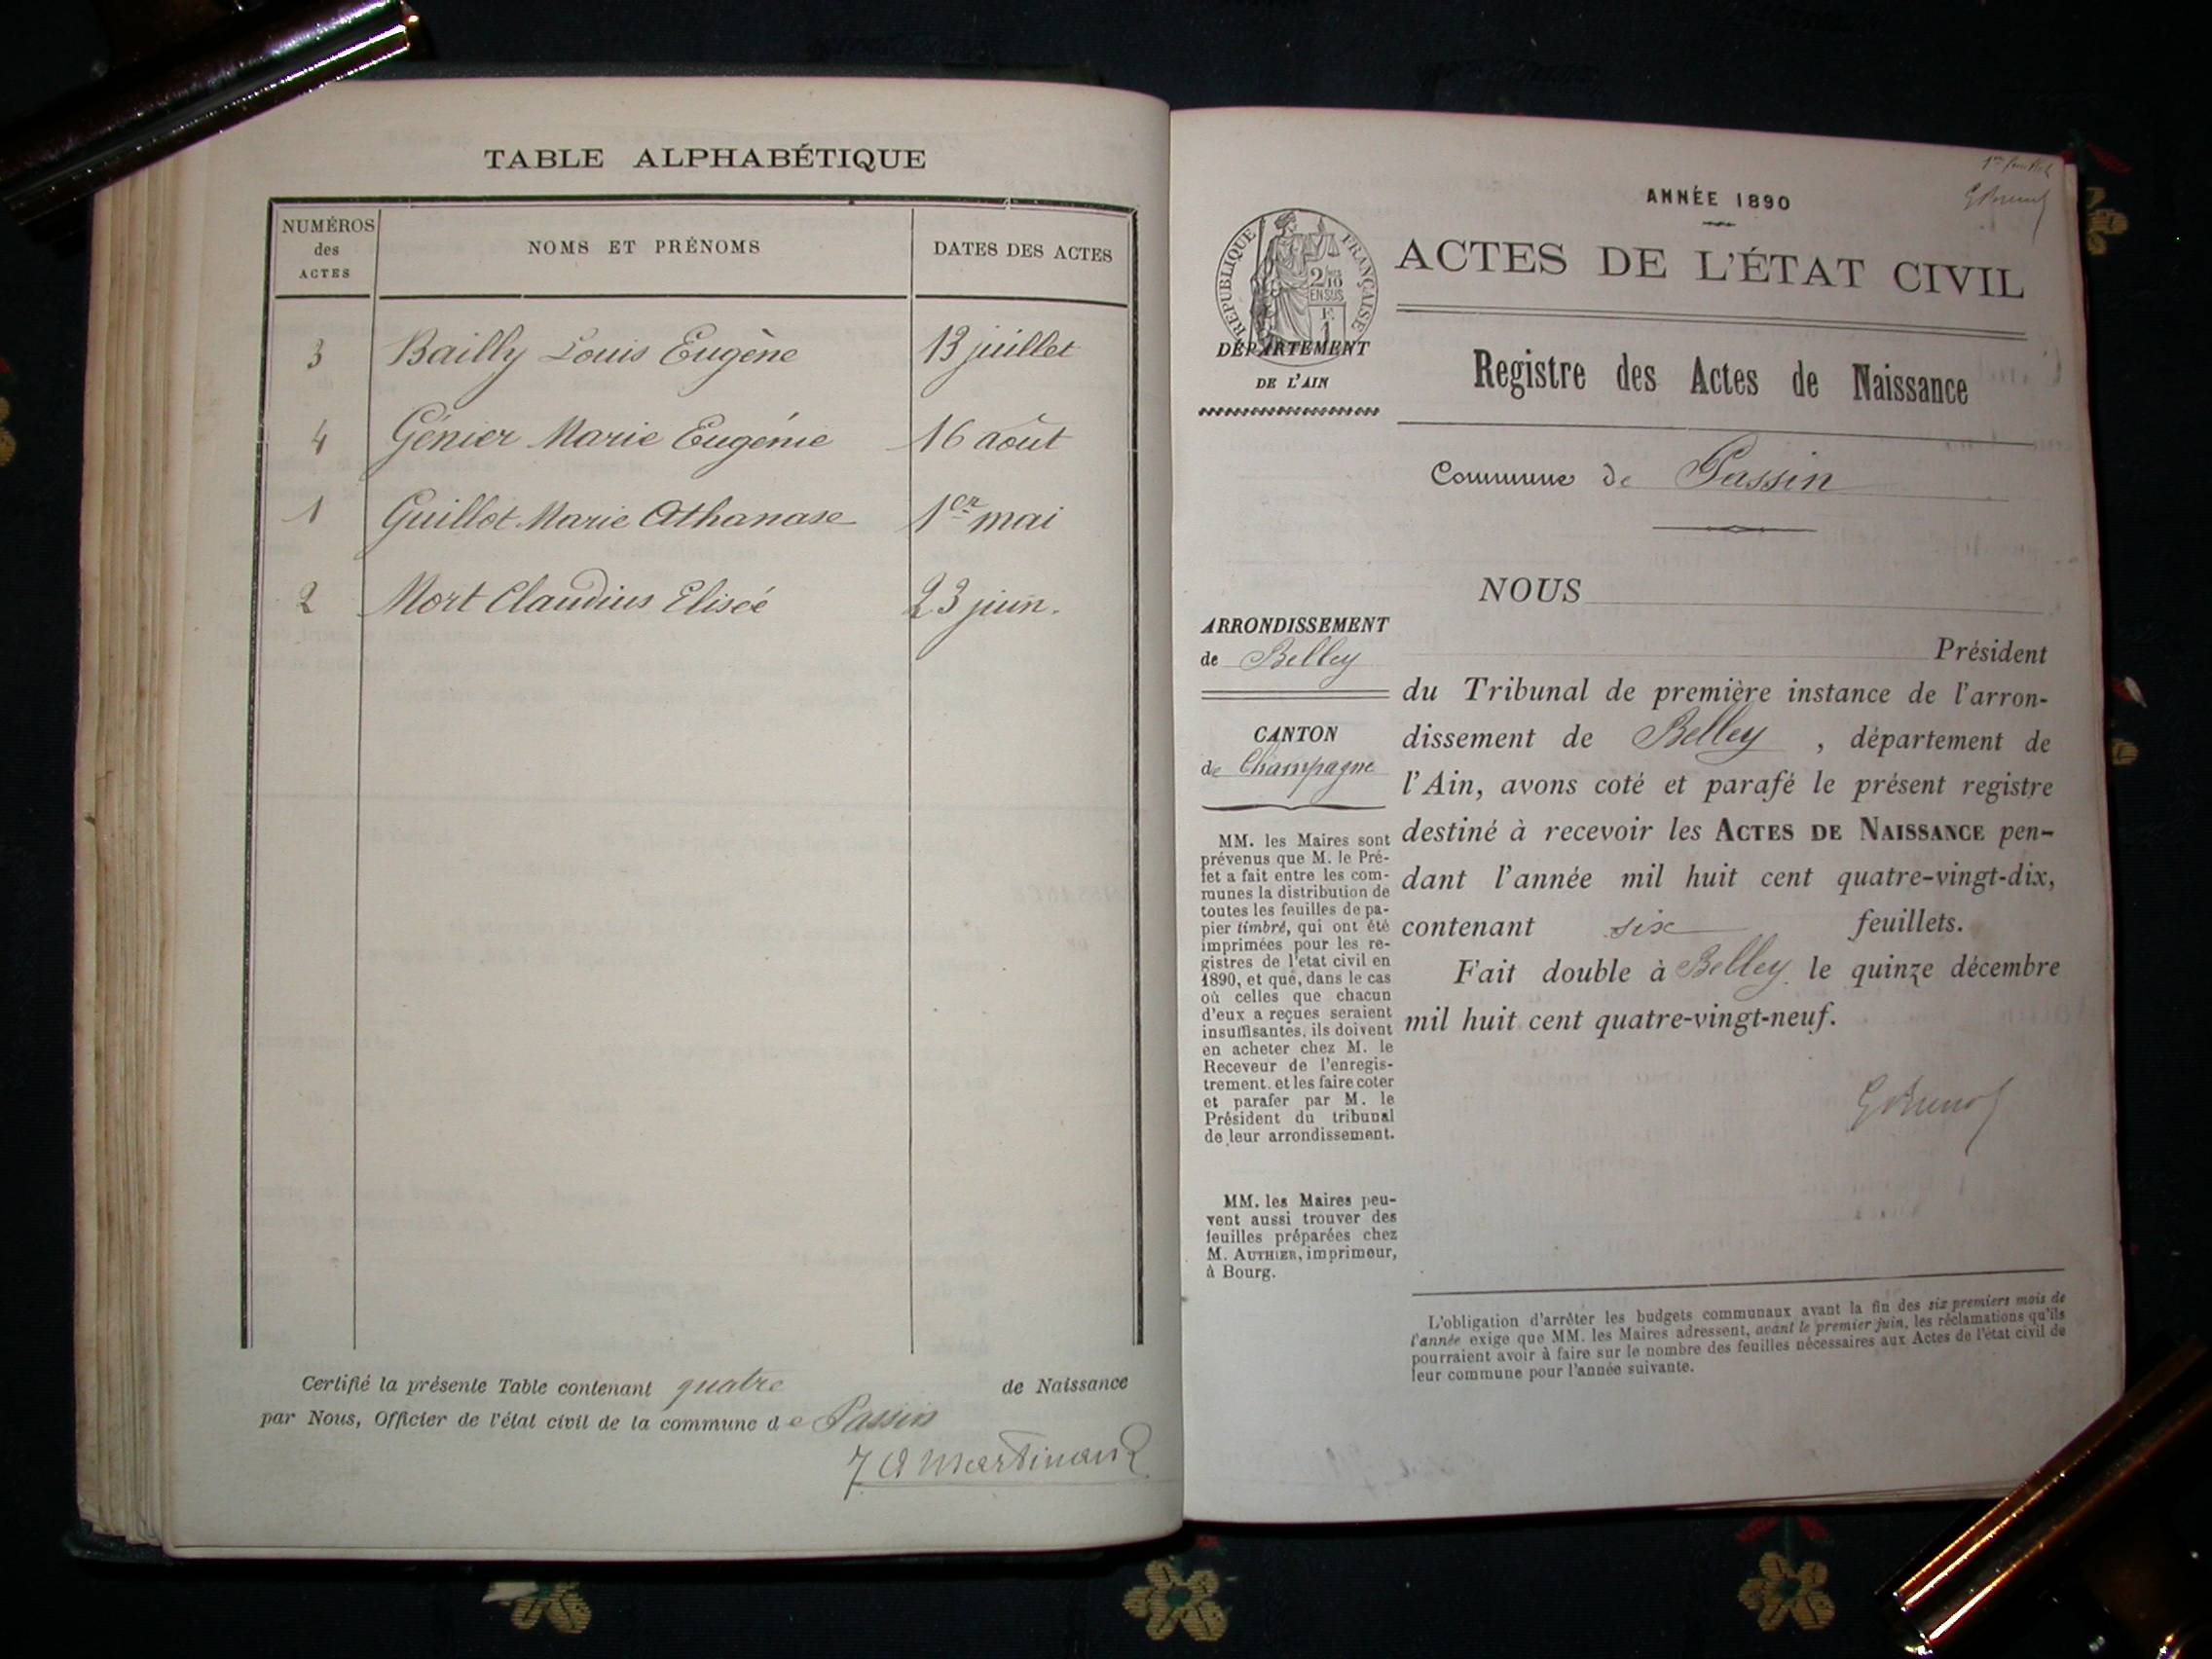 TABLE ALPHABÉTIQUE
NUMÉROS des ACTES NOMS ET PRÉNOMS DATES DES ACTES
3 Bailly Louis Eugène 13 juillet
4 Génier Marie Eugénie 16 août
1 Guillot Marie Athanase 1er mai
2 Mort Claudius Elisée 23 juin.
Certifié la présente Table contenant quatre de Naissance
par Nous, Officier de l'état civil de la commune de Passin
Martinand
1er feuillet
ANNÉE 1890
ACTES DE L'ÉTAT CIVIL
RÉPUBLIQUE FRANÇAISE
2/10 EN SUS
DÉPARTEMENT
DE L'AIN
Registre des Actes de Naissance
Commune de Passin
NOUS
ARRONDISSEMENT
de Belley
CANTON
de Champagne
MM. les Maires sont
prévenus que M. le Pré-
fet a fait entre les com-
munes la distribution de
toutes les feuilles de pa-
pier timbré, qui ont été
imprimées pour les re-
gistres de l'état civil en
1890, et que, dans le cas
où celles que chacun
d'eux a reçues seraient
insuffisantes, ils doivent
en acheter chez M. le
Receveur de l'enregis-
trement et les faire coter
et parafer par M. le
Président du tribunal
de leur arrondissement.
MM. les Maires peu-
vent aussi trouver des
feuilles préparées chez
M. AUTHIER, imprimeur,
à Bourg.
Président
du Tribunal de première instance de l'arron-
dissement de Belley, département de
l'Ain, avons coté et parafé le présent registre
destiné à recevoir les ACTES DE NAISSANCE pen-
dant l'année mil huit cent quatre-vingt-dix,
contenant six feuillets.
Fait double à Belley, le quinze décembre
mil huit cent quatre-vingt-neuf.
L'obligation d'arrêter les budgets communaux avant la fin des six premiers mois de
l'année exige que MM. les Maires adressent, avant le premier juin, les réclamations qu'ils
pourraient avoir à faire sur le nombre des feuilles nécessaires aux Actes de l'état civil de
leur commune pour l'année suivante.